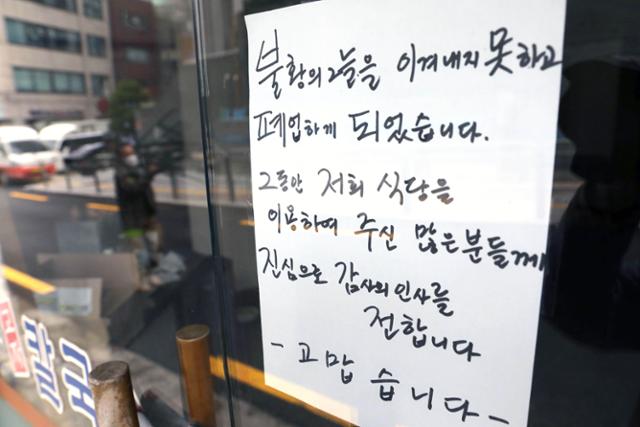 불황의 그늘을 이겨내지 못하고
폐업하게 되었습니다.
그동안 저희 식당을
이용하여 주신 많은분들께
진심으로 감사의 인사를
전합니다
- 고맙습니다 -